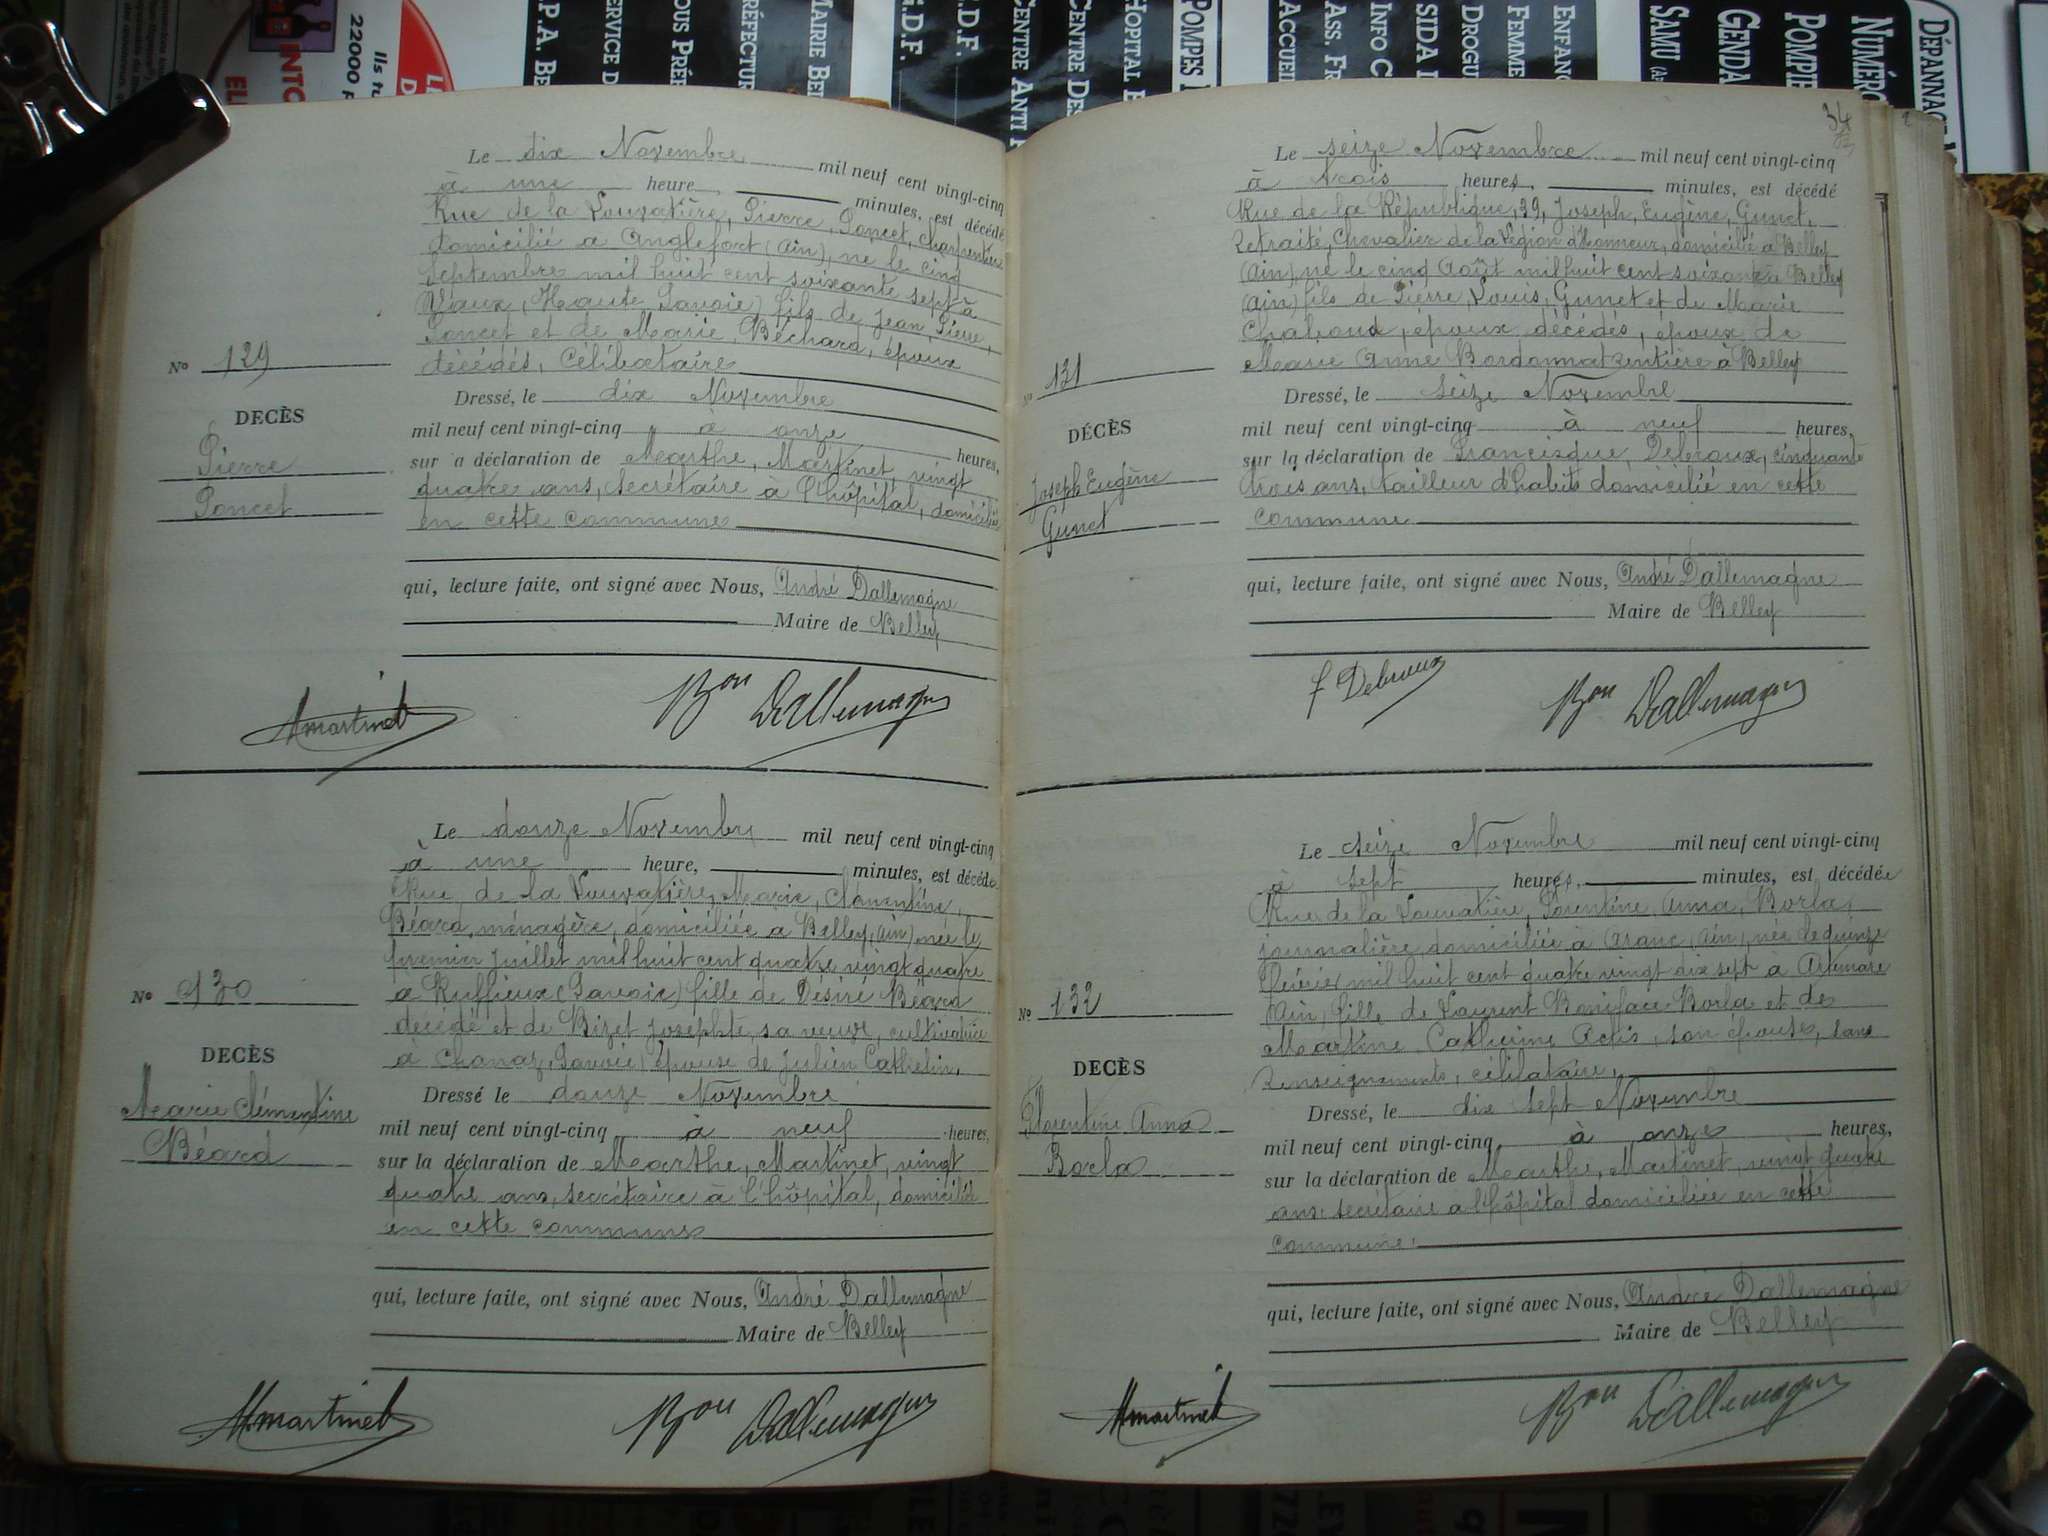 Le dix Novembre mil neuf cent vingt-cinq
à une heure, minutes, est décédé
Rue de la Louvatière, Pierre, Poncet, charpentier
domicilié à Anglefort (Ain), né le cinq
Septembre mil huit cent soixante sept à
(Haute Savoie) fils de Jean Pierre,
Poncet et de Marie, Béchard, époux
décédés, Célibataire
No 129
DECÈS
Pierre
Poncet
Dressé, le dix Novembre
mil neuf cent vingt-cinq à onze heures,
sur a déclaration de Marthe, Martinet vingt
quatre ans, secrétaire à l'hôpital, domiciliée
en cette commune
qui, lecture faite, ont signé avec Nous, André Dallemagne
Maire de Belley
Mmartinet
Bon Dallemagne
Le douze Novembre mil neuf cent vingt-cinq
à une heure, minutes, est décédée
Rue de la Louvatière, Marie, Clémentine,
Béard, ménagère, domiciliée à Belley (Ain), née le
premier Juillet mil huit cent quatre vingt quatre
à Ruffieux (Savoie) fille de Désiré Béard
décédé et de Bizet Josephte, sa veuve, cultivatrice
à Chanaz (Savoie) épouse de Julien Cathelin,
No 130
DECÈS
Marie Clémentine
Béard
Dressé le douze Novembre
mil neuf cent vingt-cinq à neuf heures,
sur la déclaration de Marthe, Martinet, vingt
quatre ans, secrétaire à l'hôpital, domiciliée
en cette commune
qui, lecture faite, ont signé avec Nous, André Dallemagne
Maire de Belley
Mmartinet
Bon Dallemagne
34
Le seize Novembre mil neuf cent vingt-cinq
à trois heures, minutes, est décédé
Rue de la République, 39, Joseph, Eugène, Gunet,
Retraité, Chevalier de la Légion d'Honneur, domicilié à Belley
(Ain), né le cinq Août mil huit cent soixante à Belley
(Ain) fils de Pierre, Louis, Gunet et de Marie
Chaboud, époux décédés, époux de
Marie Anne Bordonnat rentière à Belley
No 131
DÉCÈS
Joseph Eugène
Gunet
Dressé, le seize Novembre
mil neuf cent vingt-cinq à neuf heures,
sur la déclaration de Francisque, Debroux, cinquante
trois ans, tailleur d'habits domicilié en cette
commune
qui, lecture faite, ont signé avec Nous, André Dallemagne
Maire de Belley
f Debroux
Bon Dallemagne
Le seize Novembre mil neuf cent vingt-cinq
à sept heures, minutes, est décédée
Rue de la Louvatière, Florentine, Anna, Borla,
journalière domiciliée à Aranc (Ain), née le quinze
Février mil huit cent quatre vingt dix sept à Artemare
(Ain) fille de Laurent Boniface Borla et de
Martine Catherine Actis, son épouse, sans
renseignements, célibataire,
No 132
DECÈS
Florentine Anna
Borla
Dressé, le dix sept Novembre
mil neuf cent vingt-cinq à onze heures,
sur la déclaration de Marthe, Martinet, vingt quatre
ans, secrétaire à l'hôpital domiciliée en cette
commune.
qui, lecture faite, ont signé avec Nous, André Dallemagne
Maire de Belley
Mmartinet
Bon Dallemagne